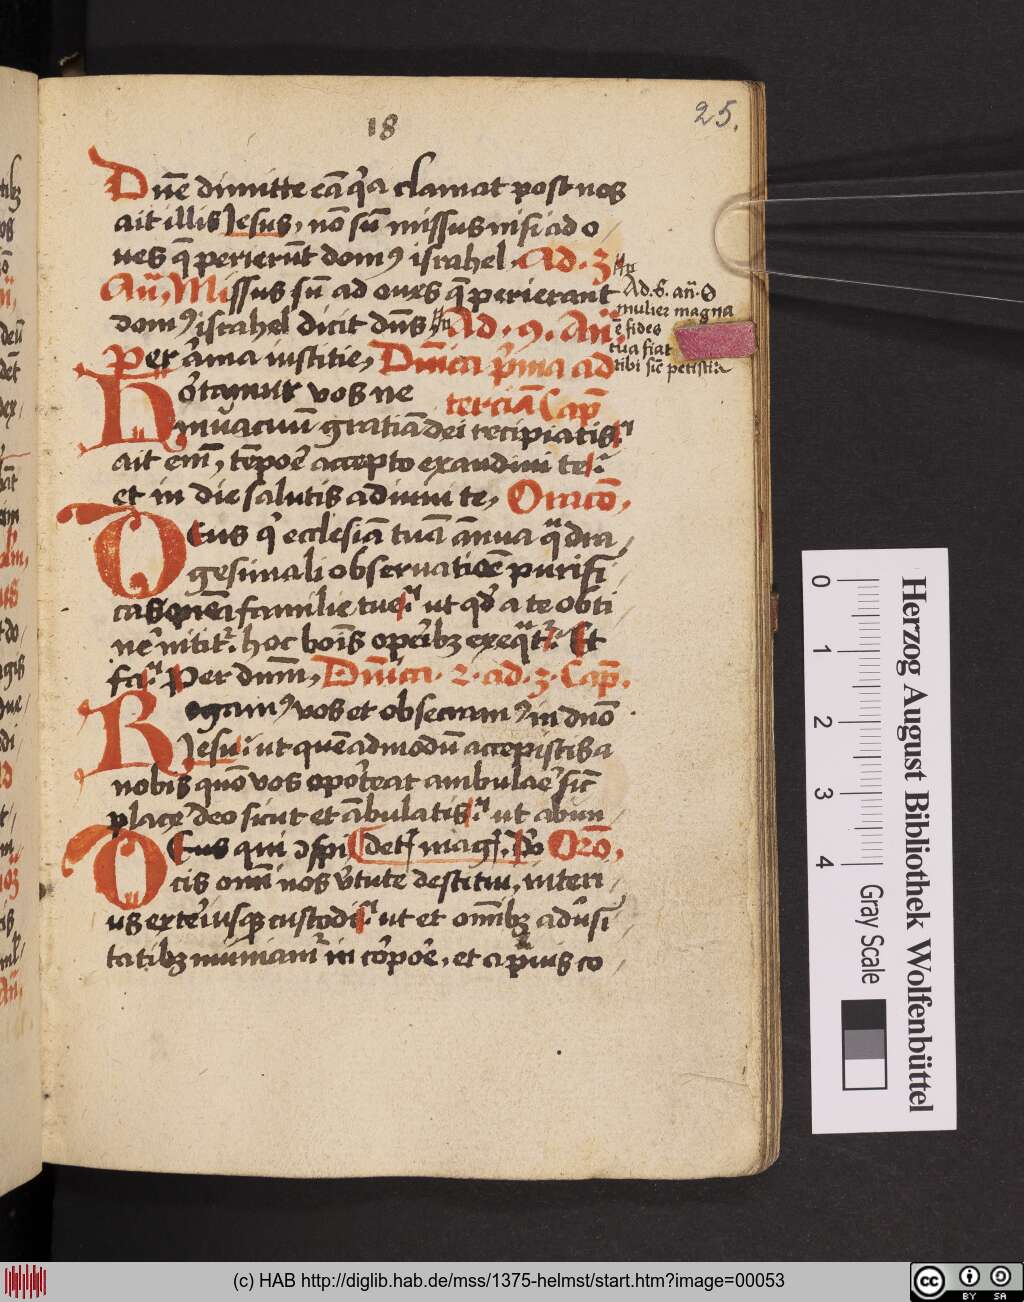 18
25.
Dn̄e dimitte eā q'a clamat post nos
ait illis Jesus, nō sū missus nisi ad o
ues q̄ perierūt dom9 israhel. Ad. 3.
An̄. Missus sū ad oues q̄ perierant
dom9 israhel dicit dn̄s Ad. 9. An̄.
Per arma iustitie, Dn̄ica p'ma ad
terciā Cap̄
Ad. 6. an̄. O
mulier magna
ē fides
tua fiat
tibi sic̄ petisti
Hortamur vos ne
in uacuū gratiā dei recipiatis.
ait em̄, tēpore accepto exaudiui te.
et in die salutis adiuui te, Oracō.
Deus q' ecclesiā tuā ānua q̄dra
gesimali obseruatiōe purifi
cas familie tue. ut qd' a te obti
n'e nitit'. hoc bois operibz exeq̄t'. Et
fa. Per dn̄m, Dn̄ica. 2. ad. 3. Cap̄.
Rogam9 vos et obsecram9 in dn̄o
Jesu. ut quēadmodū accepistis a
nobis quō vos oporteat ambulare sic̄
place' deo sicut et ābulatis. ut abun
detis magis. Oro.
Deus qui ɔspi
cis omi nos v'tute destitui, interi
us exteriusq3 custodi. ut et omībz adu'si
tatibz muniam' in corpore, et a prauis co
0 1 2 3 4
Herzog August Bibliothek Wolfenbüttel
Gray Scale
(c) HAB http://diglib.hab.de/mss/1375-helmst/start.htm?image=00053
cc BY SA